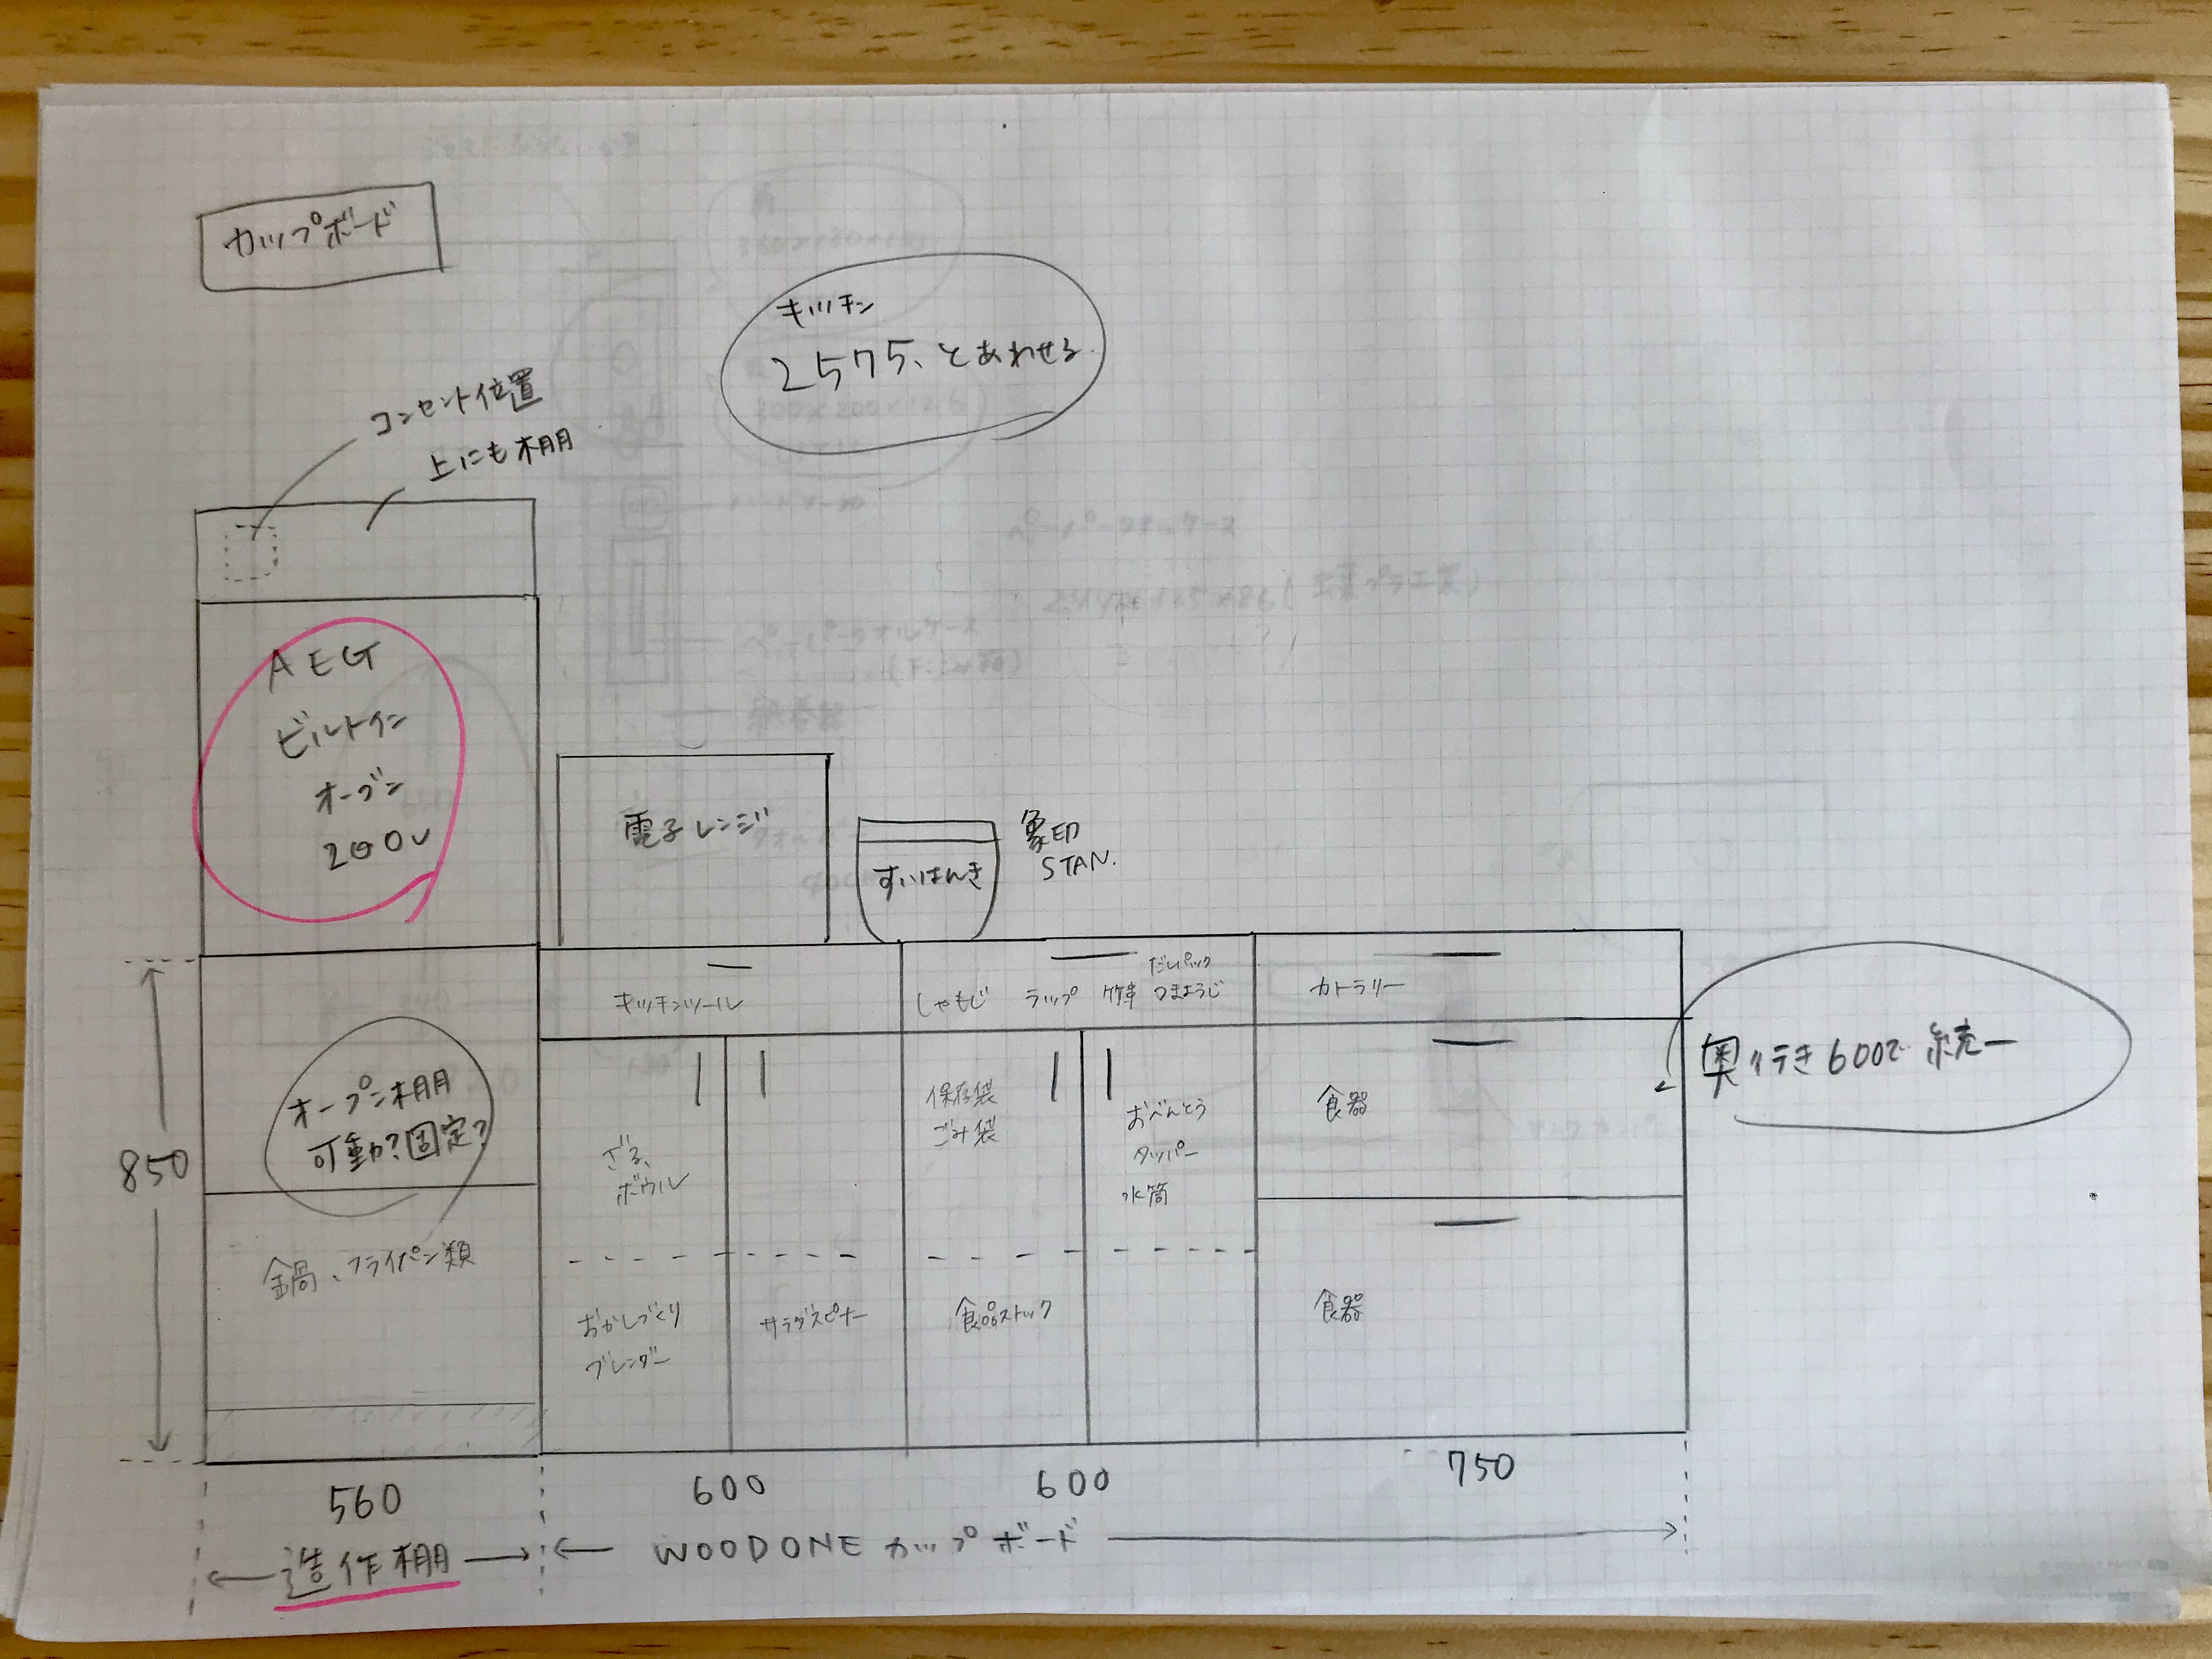 カップボード
キッチン
2575、とあわせる
コンセント位置
上にも棚
AEG
ビルトイン
オーブン
200V
電子レンジ
すいはんき
象印
STAN.
キッチンツール
しゃもじ ラップ 竹串 つまようじ
だしパック
カトラリー
奥行き600で統一
オープン棚
可動?固定?
850
ざる、
ボウル
保存袋
ごみ袋
おべんとう
タッパー
水筒
食器
鍋、フライパン類
おかしづくり
ブレンダー
サラダスピナー
食品ストック
食器
560
600
600
750
造作棚
WOODONE カップボード